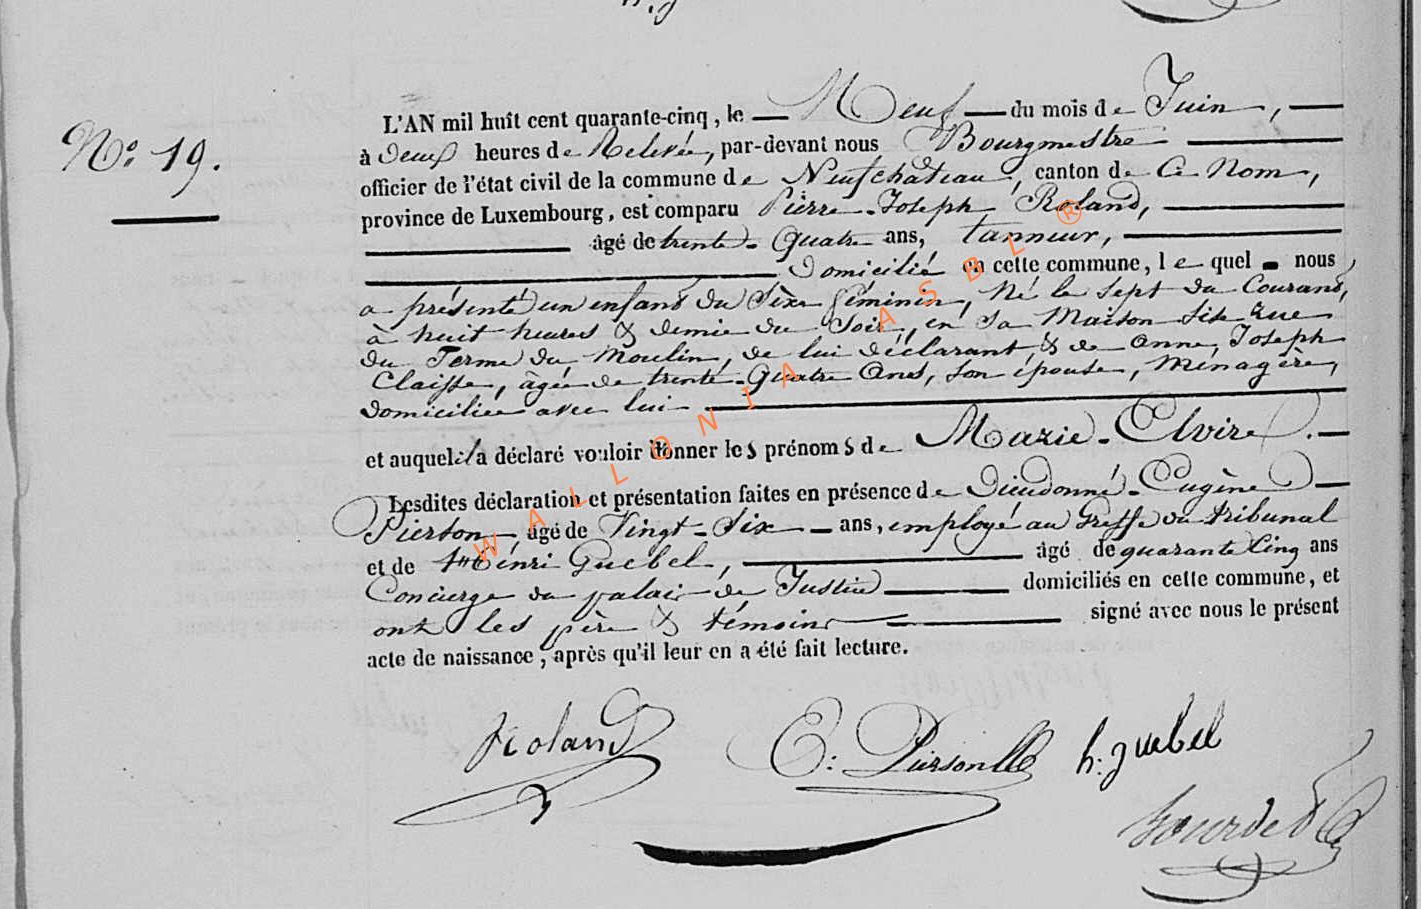 N.o 19.
L'AN mil huit cent quarante-cinq, le Neuf du mois de Juin,
à deux heures de Relevée, par-devant nous Bourgmestre
officier de l'état civil de la commune de Neufchateau, canton de Ce Nom,
province de Luxembourg, est comparu Pierre-Joseph Roland,
âgé de trente-Quatre ans, Tanneur,
Domicilié en cette commune, le quel nous
a présenté un enfant du Sèxe féminin, Né le Sept du Courant,
à huit heures & demie du Soir, en Sa Maison Sise Rue
du Terme du Moulin, de lui déclarant & de Anne, Joseph
Claisse, âgée de trente-Quatre Ans, Son épouse, Ménagère,
domiciliée avec lui
et auquel il a déclaré vouloir donner les prénoms de Marie-Elvire.
Lesdites déclaration et présentation faites en présence de Dieudonné-Eugène
Pierson, âgé de Vingt-Six ans, employé au Greffe du tribunal
et de Henri Guebel, âgé de quarante Cinq ans
Concierge du palais de Justice domiciliés en cette commune, et
ont les père & témoins signé avec nous le présent
acte de naissance, après qu'il leur en a été fait lecture.
Roland E: Pierson h: guebel
WALLONIA ASBL ®